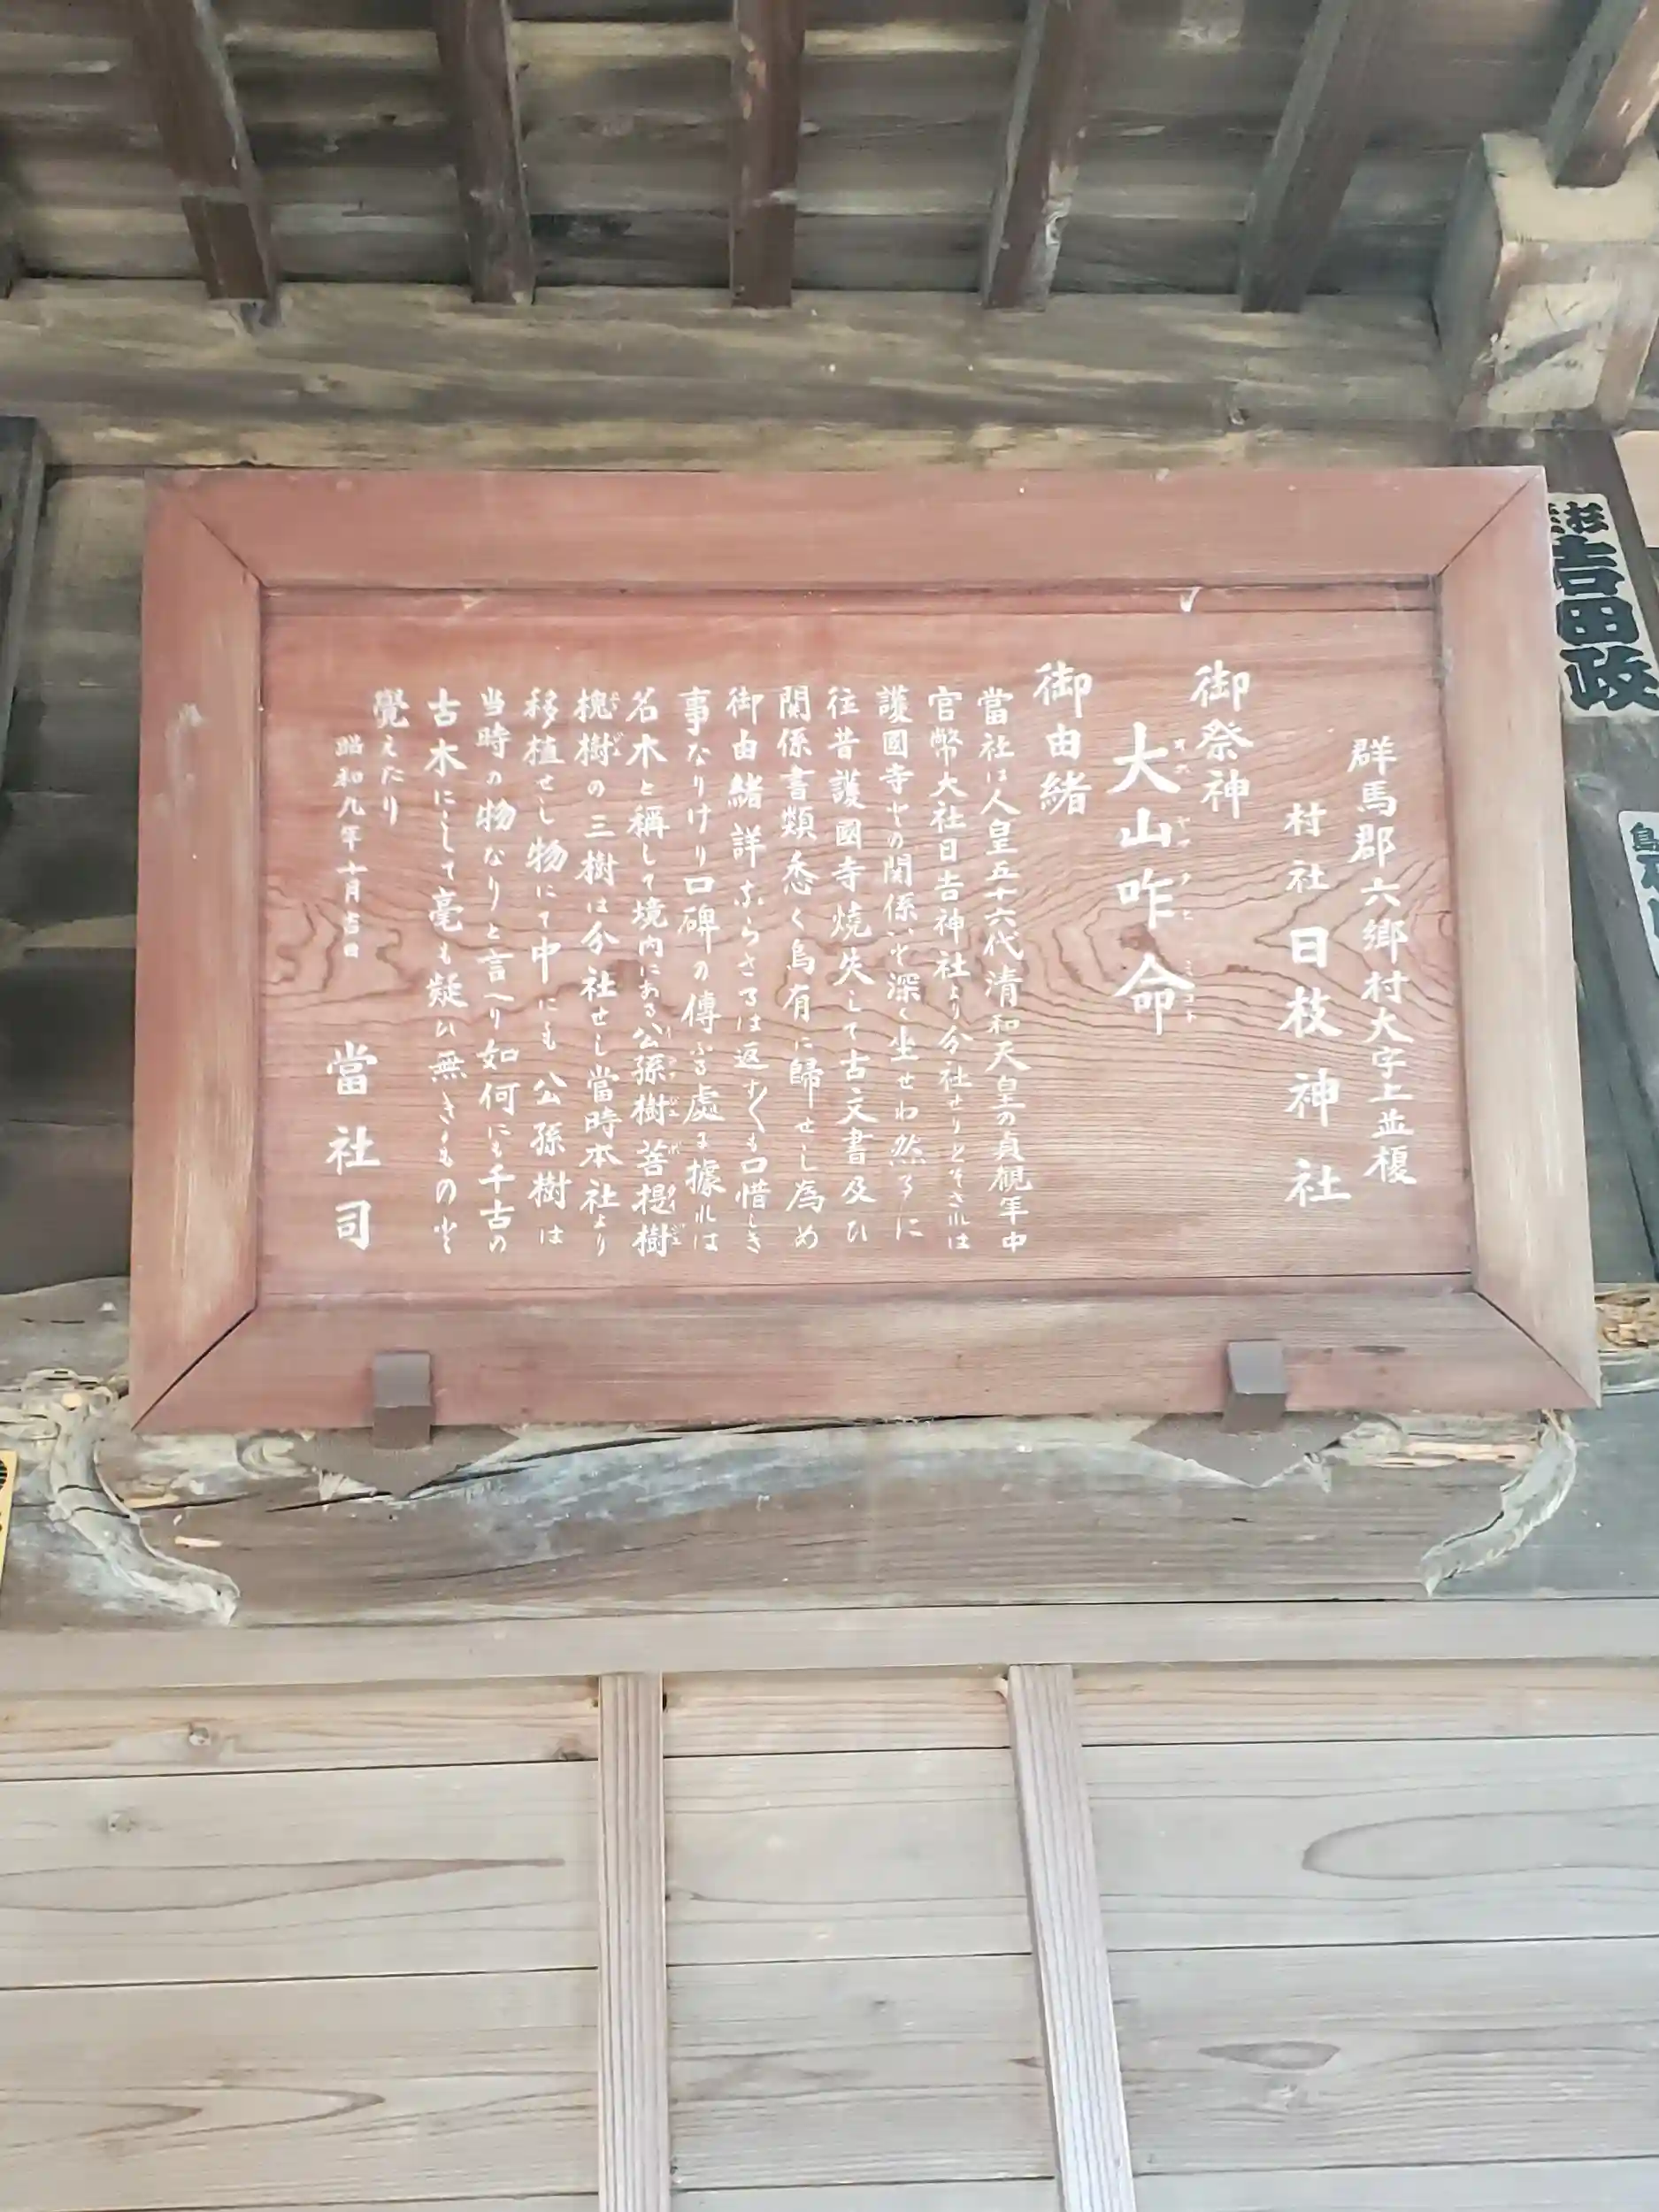 群馬郡六郷村大字上並榎
村社 日枝神社
御祭神
大山咋命
御由緒
當社は人皇五十六代清和天皇の貞観年中
官幣大社日吉神社より分社せりとそされは
護國寺との関係いと深く坐せり然るに
往昔護國寺燒失して古文書及ひ
関係書類悉く烏有に歸せし為め
御由緒詳ならさるは返すくも口惜しき
事なりけり口碑の傳ふる處に據れは
名木と稱して境内にある公孫樹菩提樹
槐樹の三樹は分社せし當時本社より
移植せし物にて中にも公孫樹は
当時の物なりと言へり如何にも千古の
古木にして毫も疑ひ無きものと
覺えたり
昭和九年十月吉日
當社司
杉
吉田政